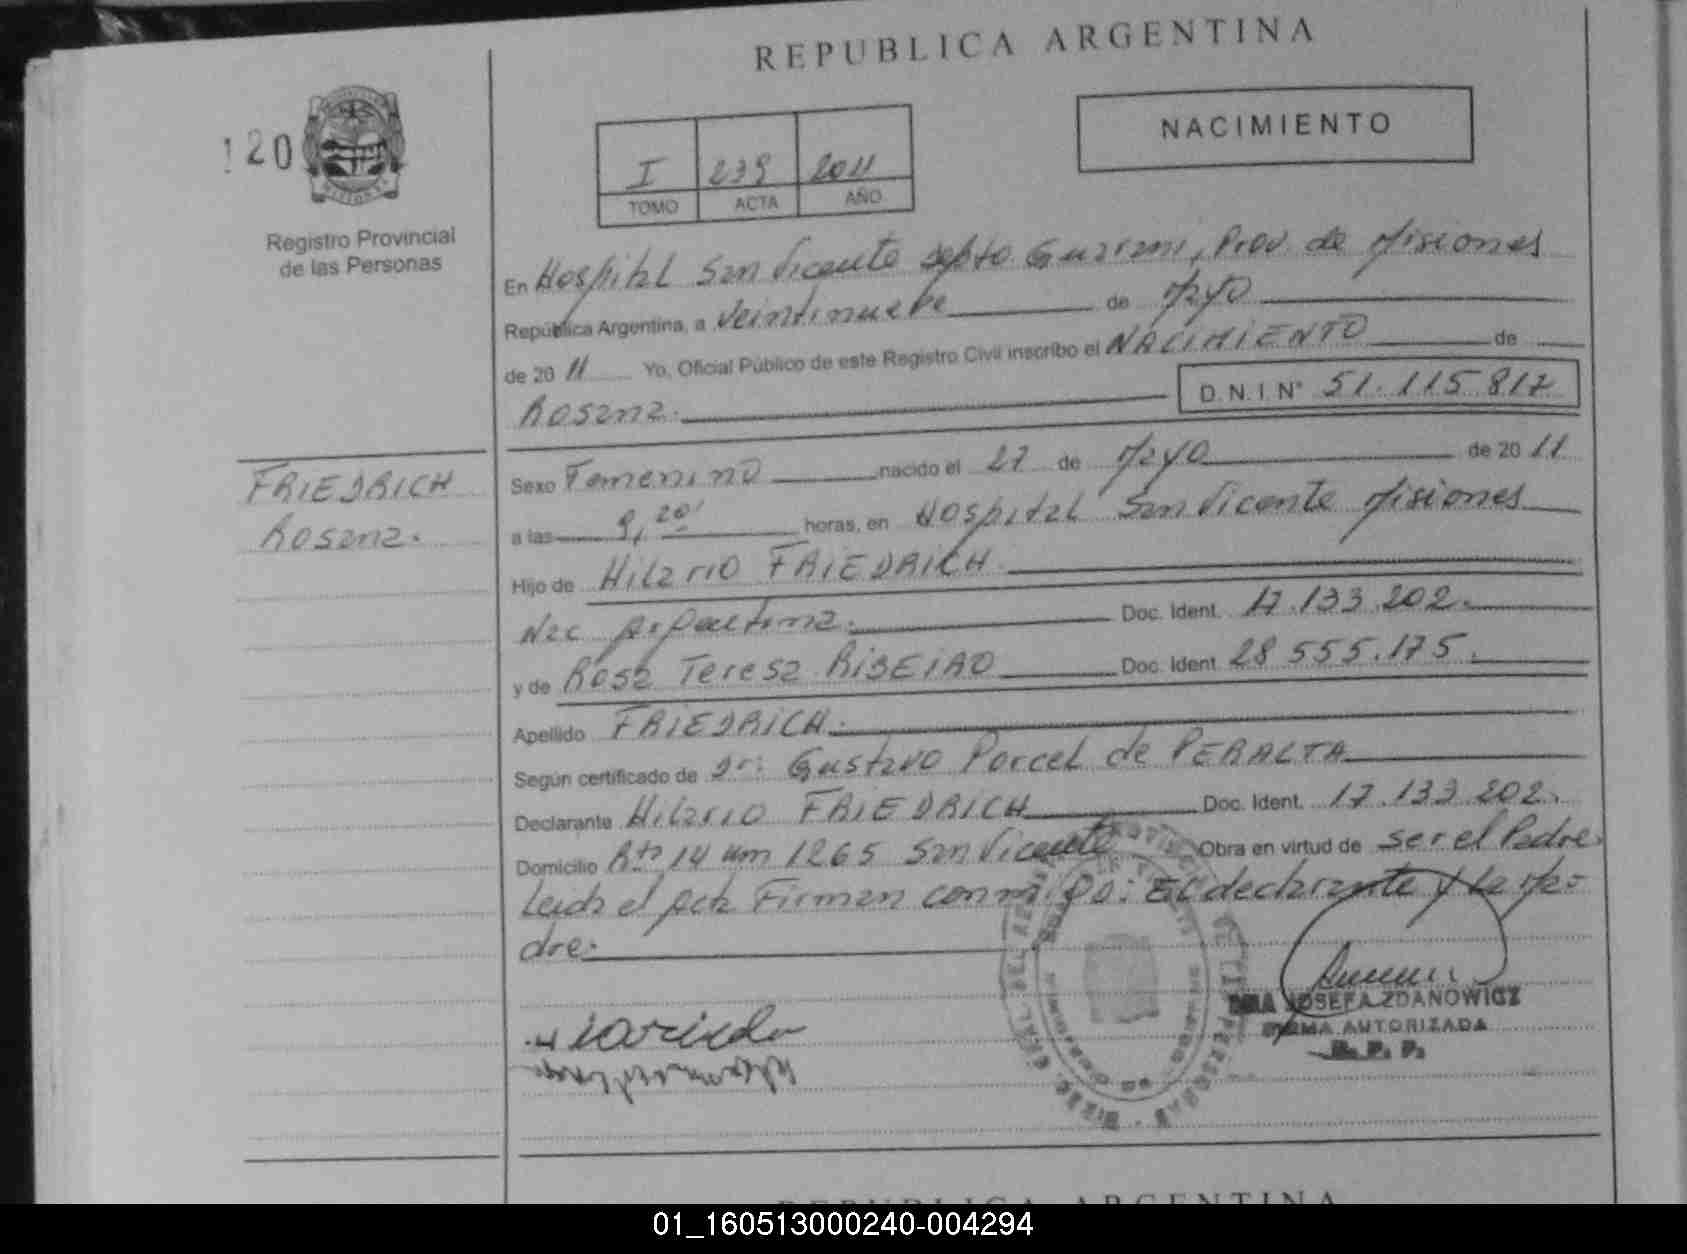 REPUBLICA ARGENTINA
120
NACIMIENTO
I 239 2011
TOMO ACTA AÑO
Registro Provincial
de las Personas
En Hospital San Vicente Depto Guarani, Prov. de Misiones
República Argentina, a Veintinueve de Mayo
de 2011 Yo, Oficial Público de este Registro Civil inscribo el NACIMIENTO de
Rosana. D.N.I. N° 51.115.817
FRIEDRICH
Rosana.
Sexo Femenino nacido el 27 de Mayo de 2011
a las 9,20' horas, en Hospital San Vicente Misiones
Hijo de Hilario FRIEDRICH
Nac Argentina. Doc. Ident. 17.133.202.
y de Rosa Teresa RIBEIRO Doc. Ident. 28.555.175.
Apellido FRIEDRICH.
Según certificado de Dr: Gustavo Porcel de PERALTA
Declarante Hilario FRIEDRICH Doc. Ident. 17.133.202.
Domicilio Rta 14 Km 1265 San Vicente Obra en virtud de ser el Padre.
Leida el Acta Firman conmigo: El declarante y la Ma=
dre.
JOSEFA ZDANOWICZ
FIRMA AUTORIZADA
R. P. P.
REPUBLICA ARGENTINA
01_160513000240-004294